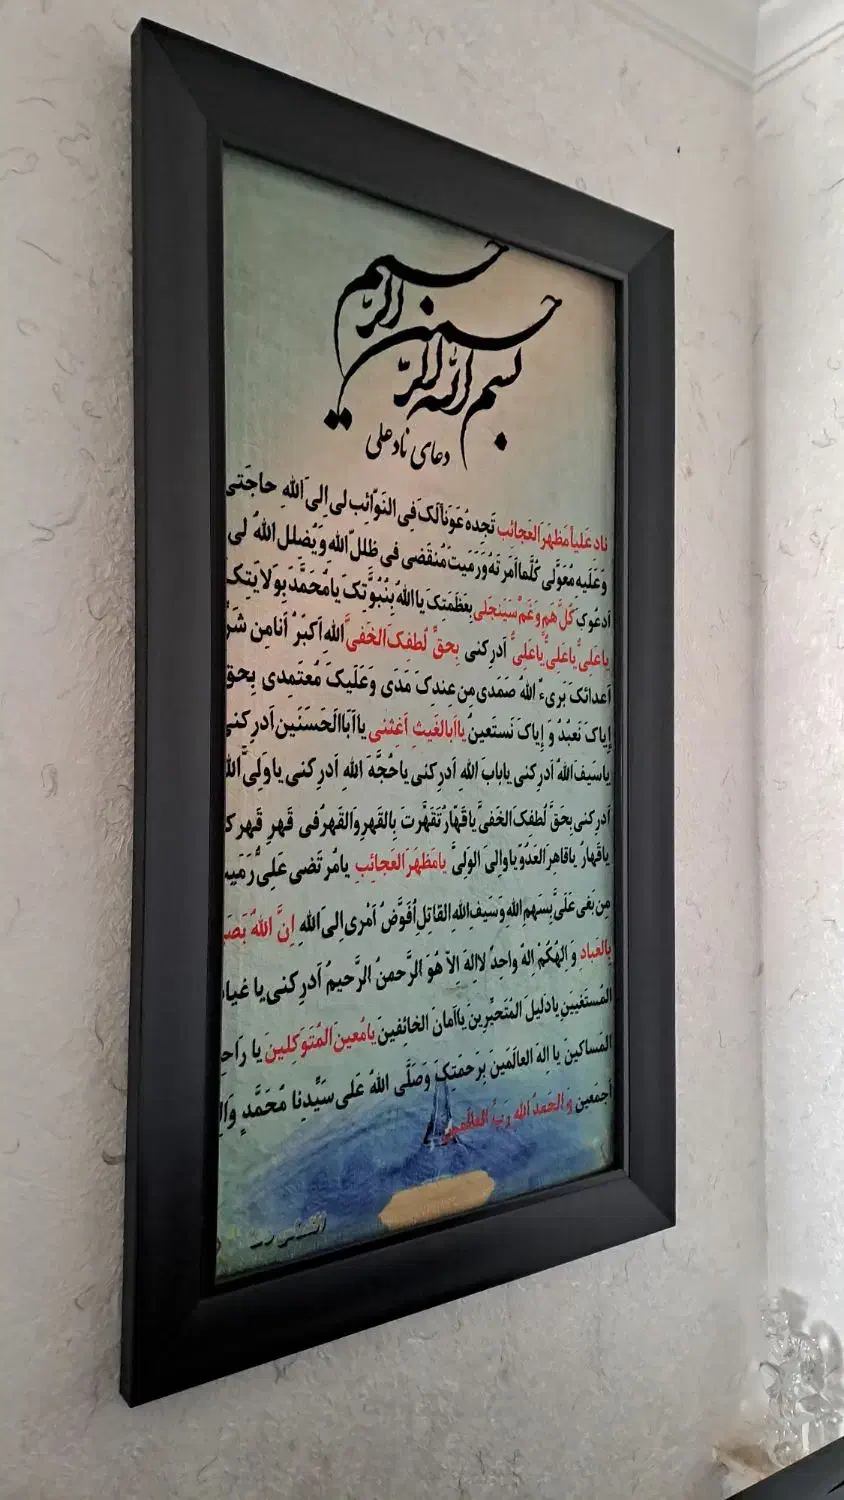 بسم الله الرحمن الرحیم
دعای ناد علی
ناد عَلیاً مَظهَرَ العَجائِب تَجِدهُ عَوناً لَکَ فِی النَوّائِب لی اِلیَ اللهِ حاجَتی
وَ عَلَیهِ مُعَوَّلی کُلَّما اَمَرتَهُ وَرَمَیتَ مُنقَضی فی ظللّ اللهِ وَیُضلل اللهُ لی
اَدعُوکِ کُلَّ هَمٍ وَ غَمٍّ سَیَنجَلی بِعَظَمَتِکَ یا اللهُ بِنُبُوَّتِکَ یا مُحَمَّدَ بِوَلایَتِک
یاعَلِیُّ یاعَلِیُّ یاعَلِیُّ اَدرِکنی بِحقِّ لُطفِکَ الخَفیَّ اللهِ اَکبَرُ اَنا مِن شَرِّ
اَعدائکَ بَریءٌ اللهُ صَمَدی مِن عِندِکَ مَدَی وَ عَلَیکَ مُعتَمِدی بِحَقِّ
اِیاکَ نَعبُدُ وَ اِیاکَ نَستَعینُ یا اَبالغَیثِ اَغِثنی یا اَبَاالحَسَنَین اَدرِکنی
یا سَیفَ اللهُ اَدرِکنی یا بابَ اللهِ اَدرِکنی یا حُجَّةَ اللهِ اَدرِکنی یا وَلِیَّ اللهِ
اَدرِکنی بِحَقِّ لُطفِکَ الخَفیِّ یا قَهّارُ تَقَهَّرتَ بِالقَهرِ وَالقَهرُ فی قَهرِ قَهرِکَ
یا قَهارُ یا قاهِرَ العَدُوِّ یا والِیَ الوَلِیِّ یامَظهَرَ العَجائِبِ یامُرتَضی عَلِیُّ رَمَیتَ
مِن بَغی عَلَیَّ بِسَهمِ اللهِ وَسَیفِ اللهِ القاتِلِ اُفَوِّضُ اَمری اِلَی اللهِ اِنَّ اللهُ بَصَ
بِالعَبادِ وَ اِلهُکُمْ اِلهٌ واحِدٌ لااِلهَ اِلاّ هُوَ الرَّحمنُ الرَّحیمُ اَدرِکنی یا غیاثَ
المُستَغیثینَ یا دَلیلَ المُتَحَیِّرینَ یا اَمانَ الخائِفینَ یا مُعینَ المُتَوَکِلینَ یا راحِمَ
المَساکینَ یا الهَ العالَمَینَ بِرَحمَتِکَ وَصَلَّی اللهُ عَلی سَیِّدِنا مُحَمَّدٍ وَالِهِ
اَجمَعین وَ الحَمدُ الله رَبِّ العالَمین